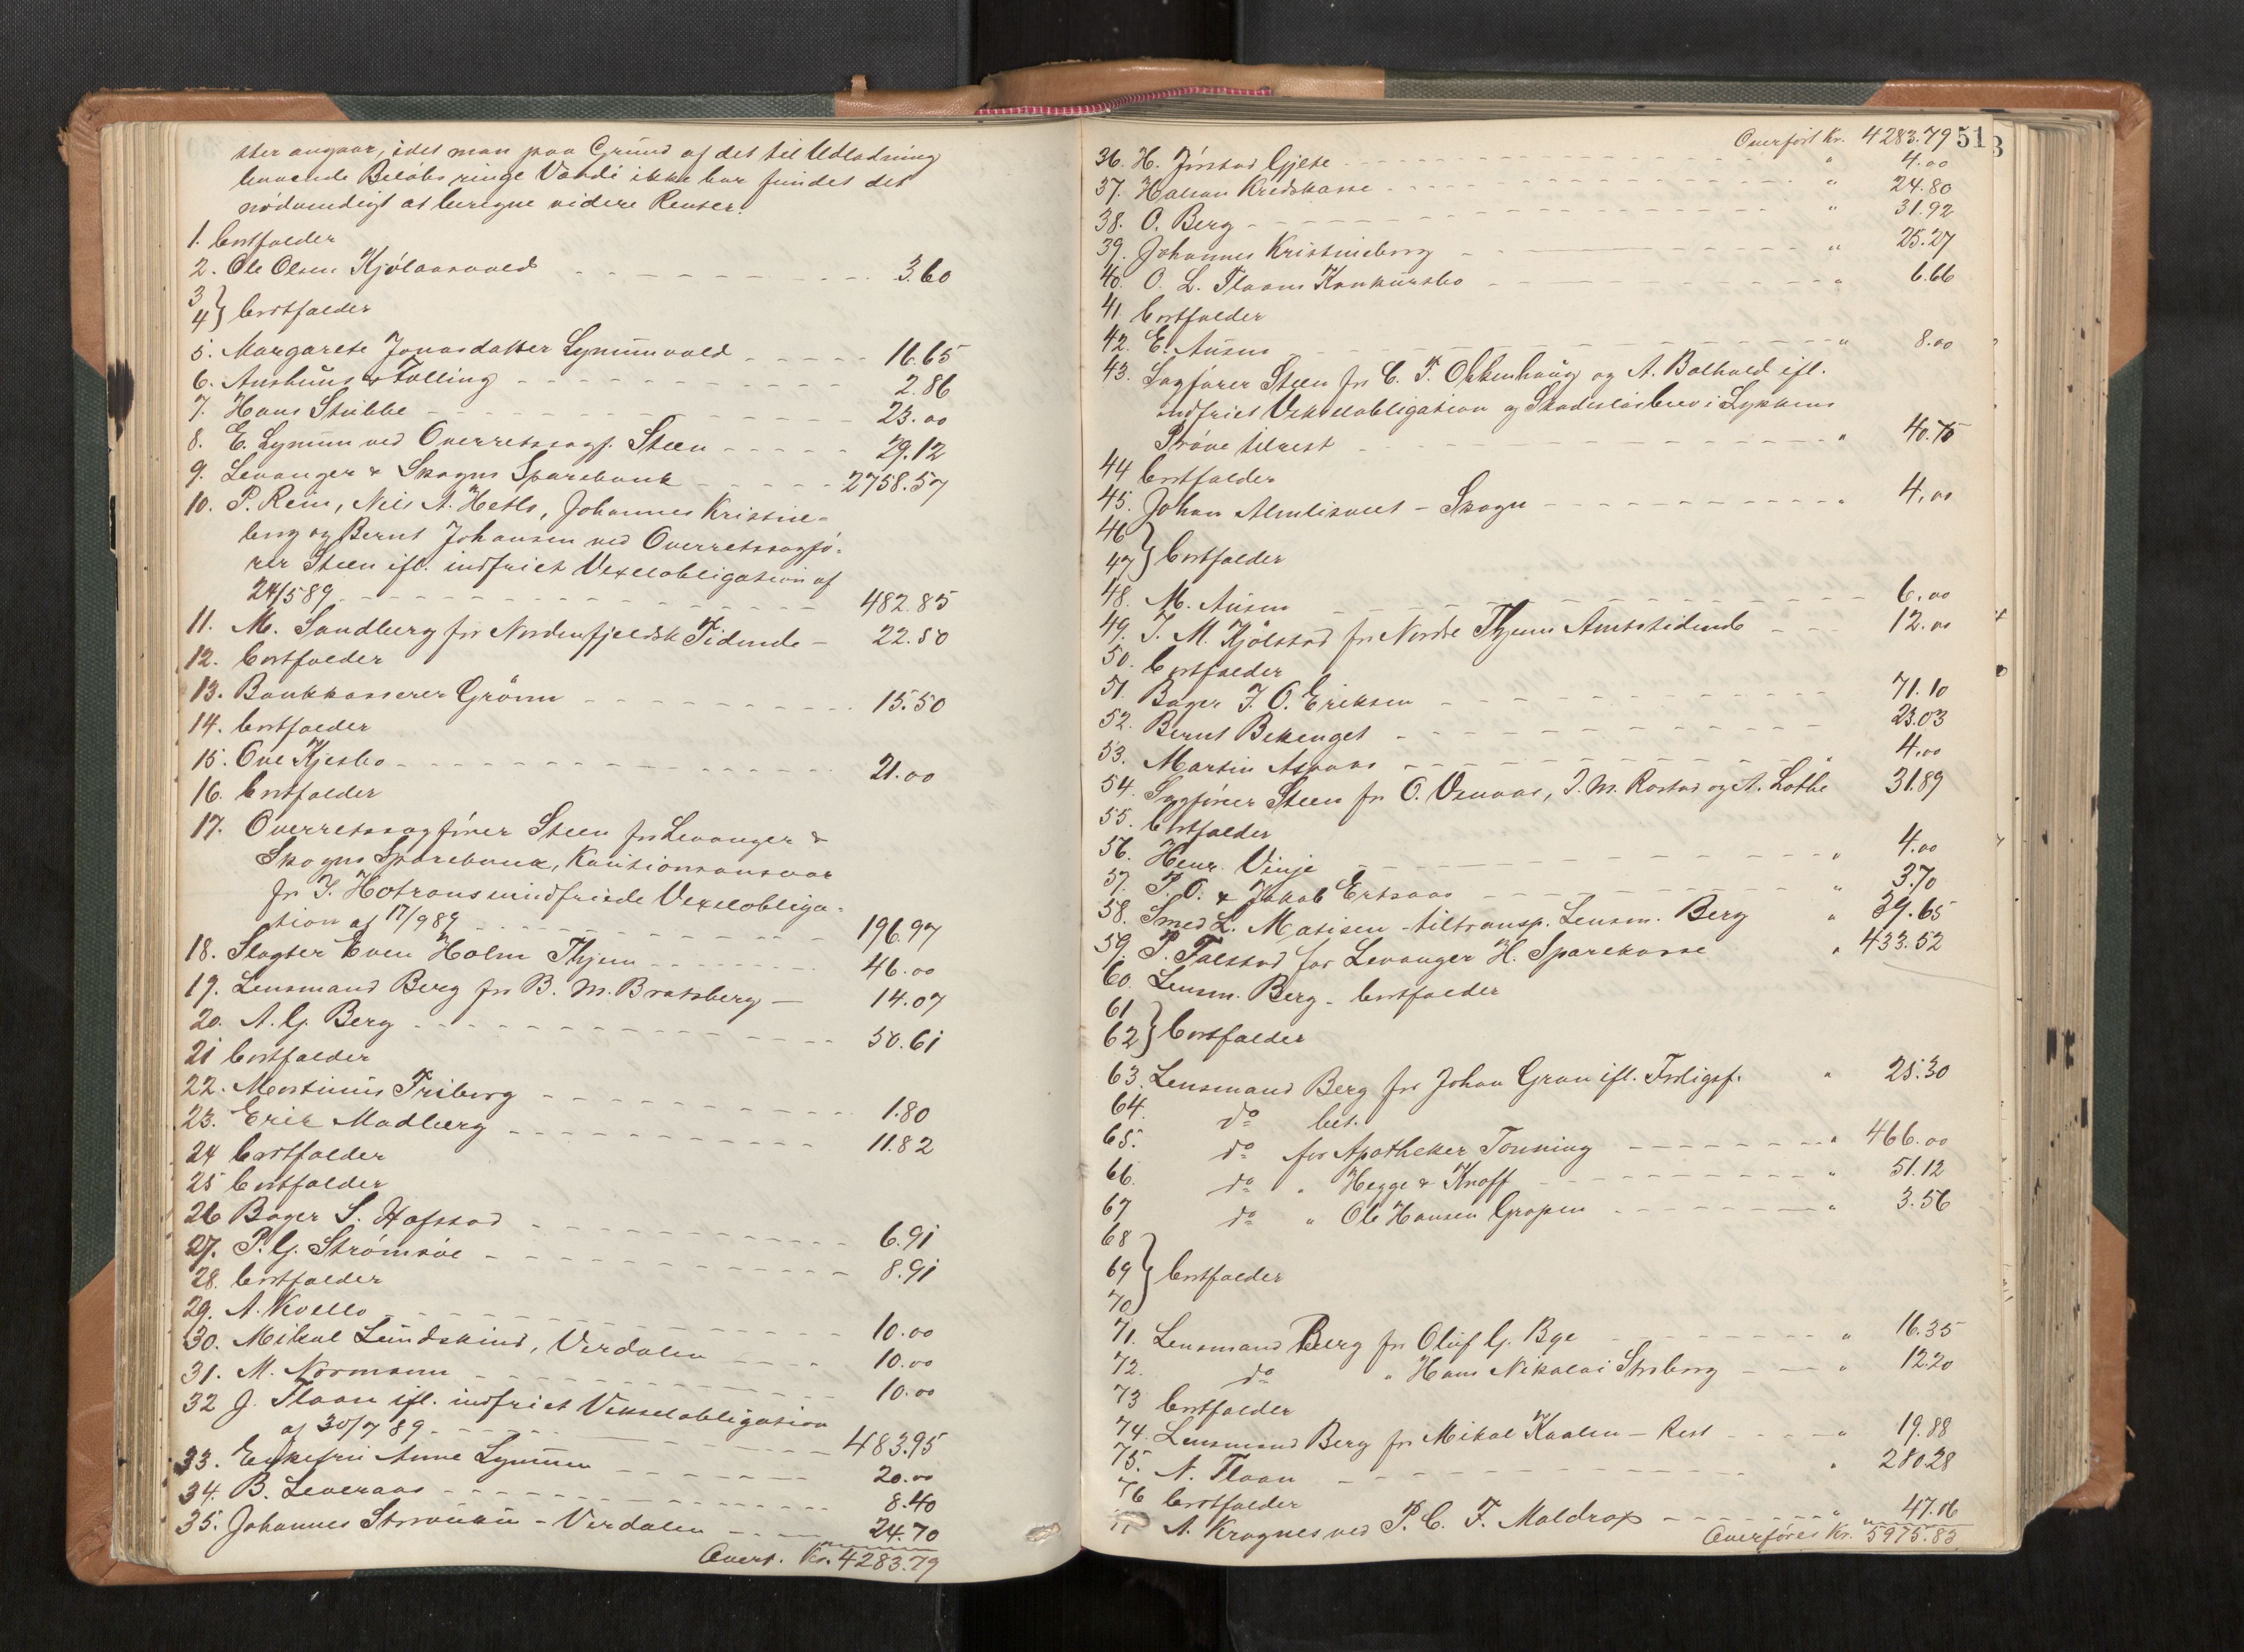 ster angaar, idet man paa Grund af det til Udlodning
havende Beløbs ringe Værdi ikke har fundet det
nødvendigt at beregne videre Renter.
1. bortfalder
2. Ole Olsen Kjølaasvald 3.60
3
4 } bortfalder
5. Margarete Jonasdatter Lynumvald 16.65
6. Aushuus & Tølling 2.86
7. Hans Stubbe 23.00
8. E. Lynum ved Overretssagf. Steen 29.12
9. Levanger & Skogns Sparebank 2758.57
10. P. Rein, Nils A. Hetlo, Johannes Kristine-
berg og Bernt Johansen ved Overretssagfø-
rer Steen ifl. indfriet Vexelobligation af
24/5 89 482.85
11. M. Sandberg for Nordenfjeldsk Tidende 22.50
12. bortfalder
13. Bankkasserer Grønn 15.50
14. bortfalder
15. Ove Kjesbo 21.00
16. bortfalder
17. Overretssagfører Steen for Levanger &
Skogns Sparebank, Kautionsansvar
for J. Hotrans indfriede Vexelobliga-
tion af 17/9 89 196.97
18. Slagter Even Holm Thjem 46.00
19. Lensmand Berg for B. M. Bratsberg 14.07
20. A. G. Berg 50.61
21 bortfalder
22. Martinus Friborg 1.80
23. Erik Madberg 11.82
24 bortfalder
25 bortfalder
26 Bager S. Hafstad 6.91
27. P. G. Strømsøe 8.91
28. bortfalder
29. A. Kvello 10.00
30. Mikal Lundskind, Verdalen 10.00
31. M. Normann 10.00
32 J. Flaan ifl. indfriet Vekselobligation
af 30/7 89 483.95
33. Enkefru Anne Lynum 20.00
34. B. Leveraas 8.40
35. Johannes - Verdalen 24.70
Overf. Kr. 4283.79
51
Overført Kr. 4283.79
36. H. Jørstad Gjete " 4.00
37. Halsan Kredskasse " 24.80
38. O. Berg " 31.92
39. Johannes Kristineborg " 25.27
40. O. L. Flaans Konkursbo " 6.66
41. bortfalder
42. E. Ausen " 8.00
43. Sagfører Steen for C. T. Okkenhaug og A. Balhald ifl.
indfriet Vekselobligation og Skadesløsbrev i Lykkens
Prøve tilrest " 40.75
44 bortfalder
45. Johan Almlisveet - Skogn " 4.00
46
47 } bortfalder
48. M. Ausen 6.00
49. J. M. Kjølstad for Nordre Thjems Amtstidende 12.00
50. bortfalder
51. Bager J. O. Eriksen 71.10
52. Bernt Bekenget 23.03
53. Martin Aspaas " 4.00
54. Sagfører Steen for O. Venaas, J. M. Rostad og A. Lothe 31.89
55. bortfalder
56. Henr. Vinje " 4.00
57. P. O. & Jakob Ertsaas " 3.70
58. Smed L. Matisen - tiltransp. Lensm. Berg " 39.65
59. P. Falstad for Levanger H. Sparekasse " 433.52
60. Lensm. Berg - bortfalder
61
62 } bortfalder
63. Lensmand Berg for Johan Gran ifl. Forligsf. " 25.30
64. do bet.
65. do for Apotheker Tonning " 466.00
66. do " Hegge & Knoff " 51.12
67 do " Ole Hansen Gropen " 3.56
68
69 } bortfalder
70
71. Lensmand Berg for Oluf G. Bye " 16.35
72. do " Hans Nikolai Stuborg " 12.20
73 bortfalder
74. Lensmand Berg for Mikal Kaalen - Rest " 19.88
75. N. Flaan " 280.28
76 bortfalder
A. Kragnes ved P. C. F. Moldrop " 47.06
Overføres Kr. 5975.83